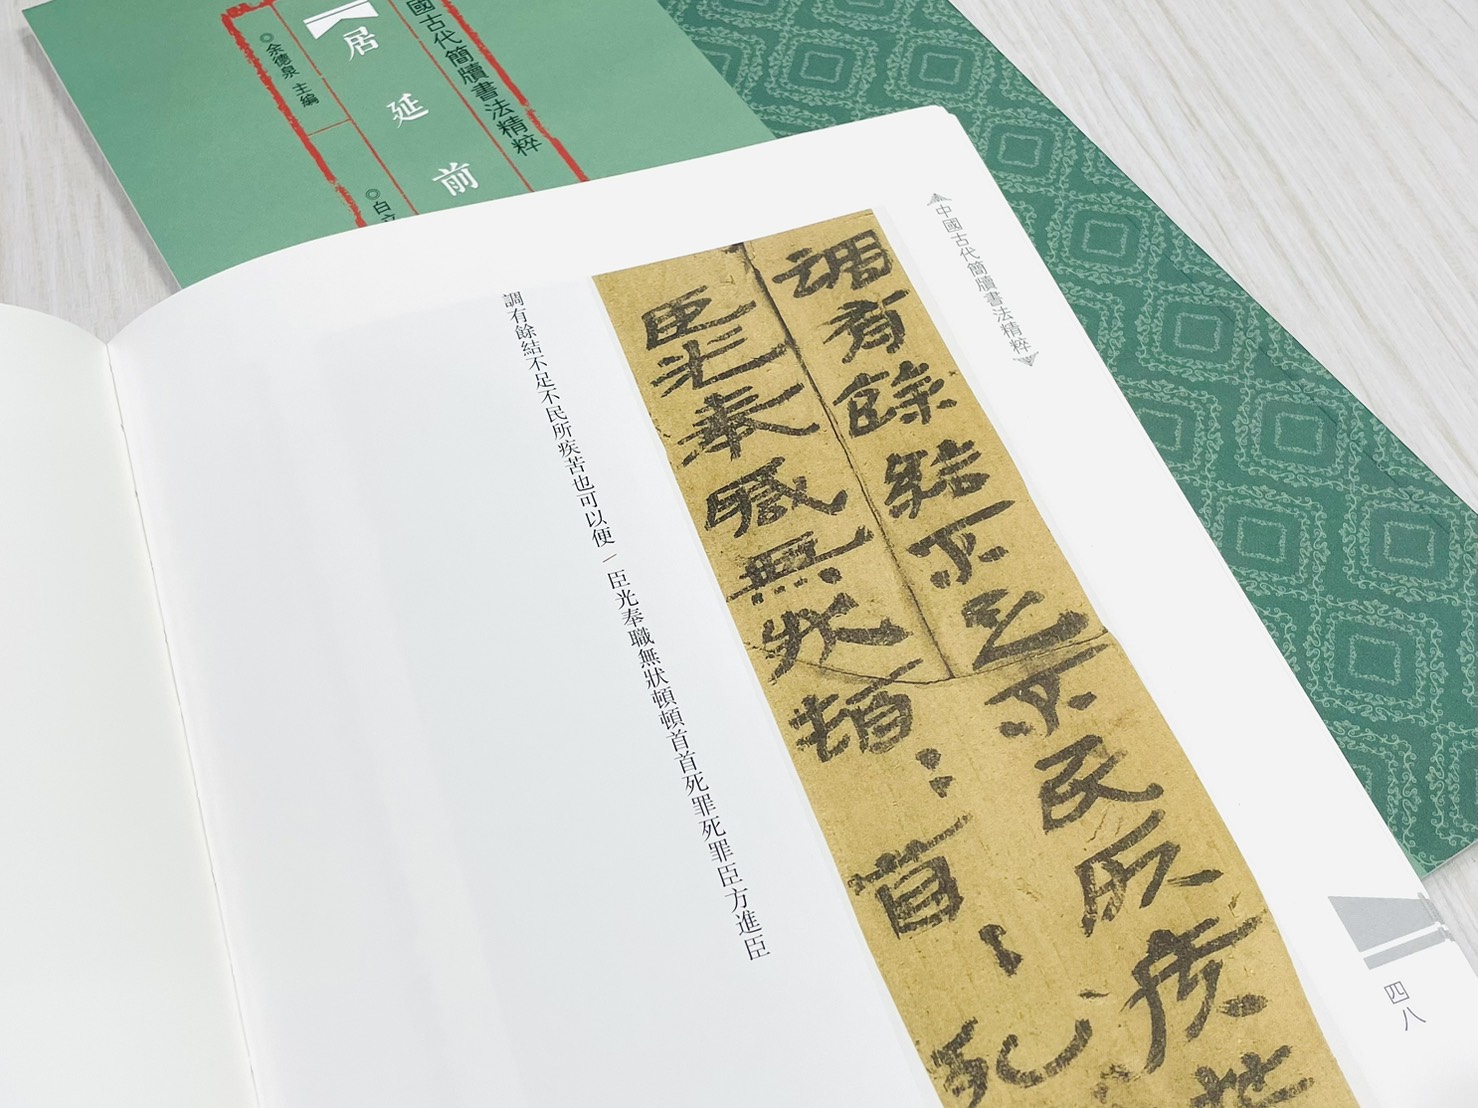 國古代簡牘書法精粹
居延前
◎余德泉 主編
◎白立
中國古代簡牘書法精粹
調有餘結不足不民所疾
臣光奉職無狀頓：首：死
調有餘結不足不民所疾苦也可以便／臣光奉職無狀頓頓首首死罪死罪臣方進臣
四八